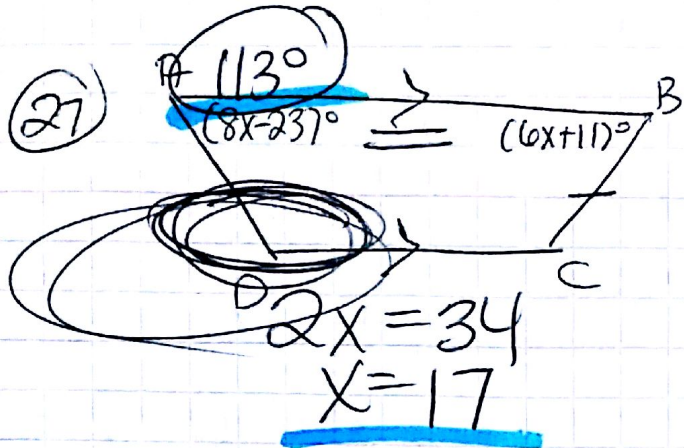 27
A 113° B
(8x-23)° = (6x+11)°
D C
2x = 34
x = 17